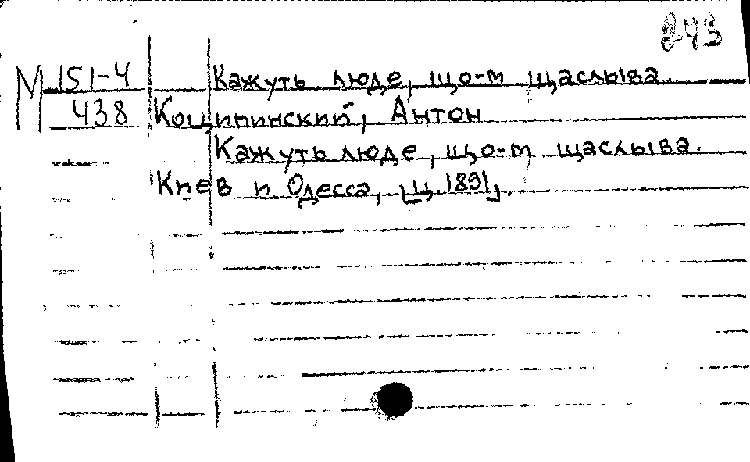 243
М 151-4 Кажуть люде, що-м щаслыва
438 Коципинский, Антон
Кажуть люде, що-м щаслыва.
Киев и Одесса, ц. 1891.